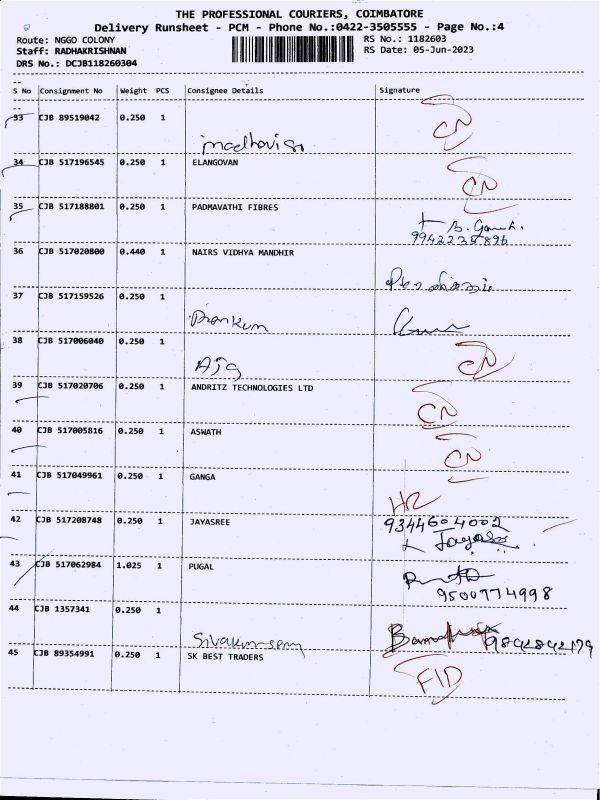 THE PROFESSIONAL COURIERS, COIMBATORE
Delivery Runsheet - PCM - Phone No.:0422-3505555 - Page No.:4
Route: NGGO COLONY RS No.: 1182603
Staff: RADHAKRISHNAN RS Date: 05-Jun-2023
DRS No.: DCJB118260304
S No Consignment No Weight PCS Consignee Details Signature
33 CJB 89519042 0.250 1 CN
34 CJB 517196545 0.250 1 ELANGOVAN CN
35 CJB 517188801 0.250 1 PADMAVATHI FIBRES
36 CJB 517020800 0.440 1 NAIRS VIDHYA MANDHIR
37 CJB 517159526 0.250 1
38 CJB 517006040 0.250 1 CN
39 CJB 517020706 0.250 1 ANDRITZ TECHNOLOGIES LTD CN
40 CJB 517005816 0.250 1 ASWATH CN
41 CJB 517049961 0.250 1 GANGA
42 CJB 517208748 0.250 1 JAYASREE 9344604002
43 CJB 517062984 1.025 1 PUGAL
9500774998
44 CJB 1357341 0.250 1
45 CJB 89354991 0.250 1 SK BEST TRADERS